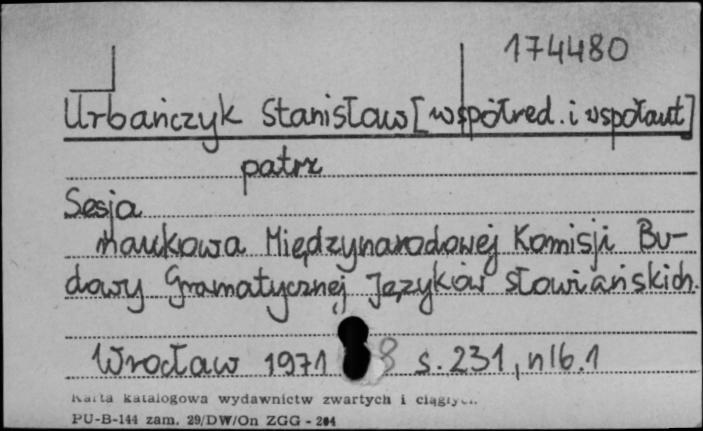 174480
Urbańczyk Stanisław [współred. i współaut]
patrz
Sesja
naukowa Międzynarodowej Komisji Bu-
dowy Gramatycznej Języków słowiańskich.
Wrocław 1971 8 s. 231, nlb. 1
Karta katalogowa wydawnictw zwartych i ciągłych.
PU-B-144 zam. 29/DW/On ZGG - 204